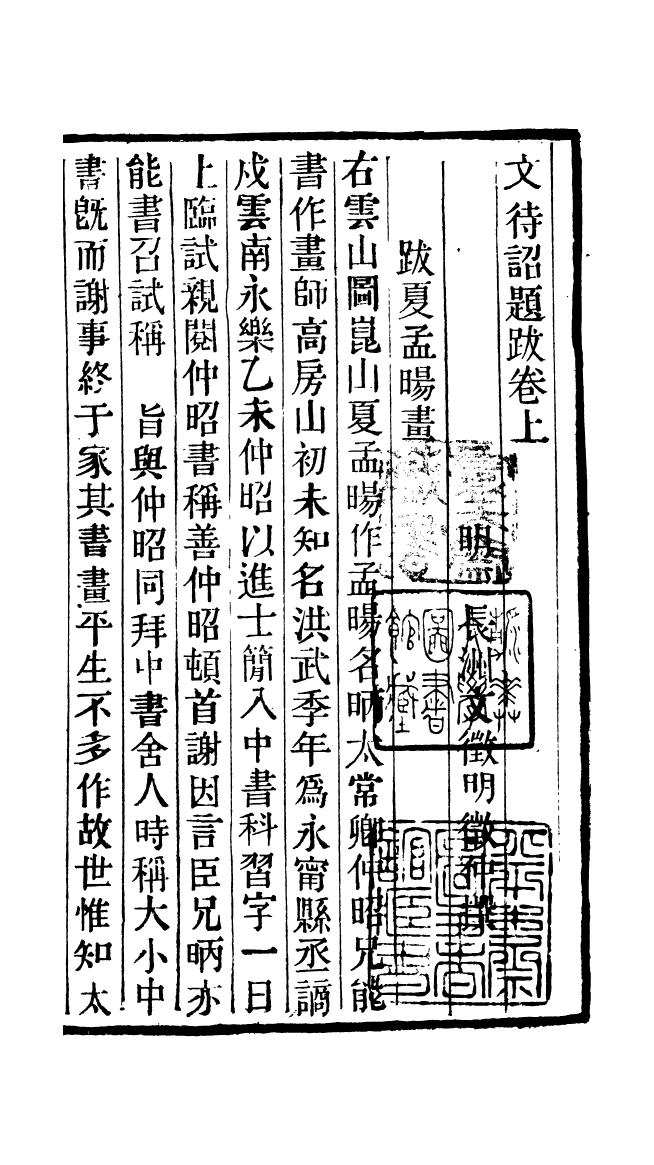 文待詔題跋卷上
明 長洲文徵明徵仲撰
跋夏孟暘畫
右雲山圖崑山夏孟暘作孟暘名昞太常卿仲昭兄能
書作畫師高房山初未知名洪武季年爲永甯縣丞謫
戍雲南永樂乙未仲昭以進士簡入中書科習字一日
上臨試親閱仲昭書稱善仲昭頓首謝因言臣兄昞亦
能書召試稱 旨與仲昭同拜中書舍人時稱大小中
書旣而謝事終于家其書畫平生不多作故世惟知太